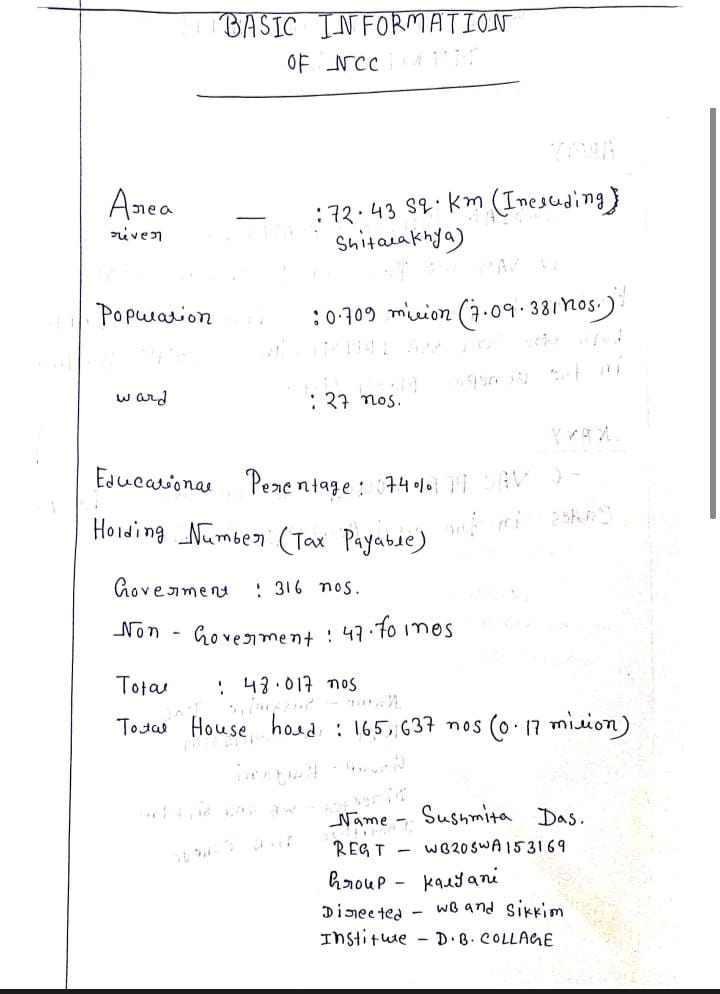 BASIC INFORMATION
OF NCC
Area — : 72.43 sq. km (Inesuding}
river Shitalakhya)
Population : 0.709 million (7.09.381 nos.)
ward : 27 nos.
Educational Percentage : 74%
Holding Number (Tax Payable)
Goverment : 316 nos.
Non - Goverment : 47.701nos
Total : 48.017 nos
Total House hold : 165,637 nos (0.17 million)
Name - Sushmita Das.
REGT - WB20SWA153169
Group - Kalyani
Directed - WB and Sikkim
Institute - D.B. COLLAGE